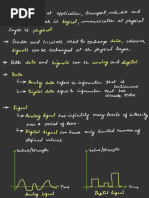 at application, transport, network and
is logical, communication at physical
layer is physical.
→ Sender and receivers need to exchange data, whereas
signals can be exchanged at the physical layer.
→ Both data and signals can be analog and digital.
→ Data
→ Analog data refers to information that is
continuous
→ Digital data refers to information that has
discrete states
→ Signal
→ Analog Signal has infinitely many levels of intensity
over a period of time.
→ Digital Signal can have only limited number of
defined values.
Value/Strength
Value/Strength
→ Time
→ Time
Analog Signal
Digital Signal